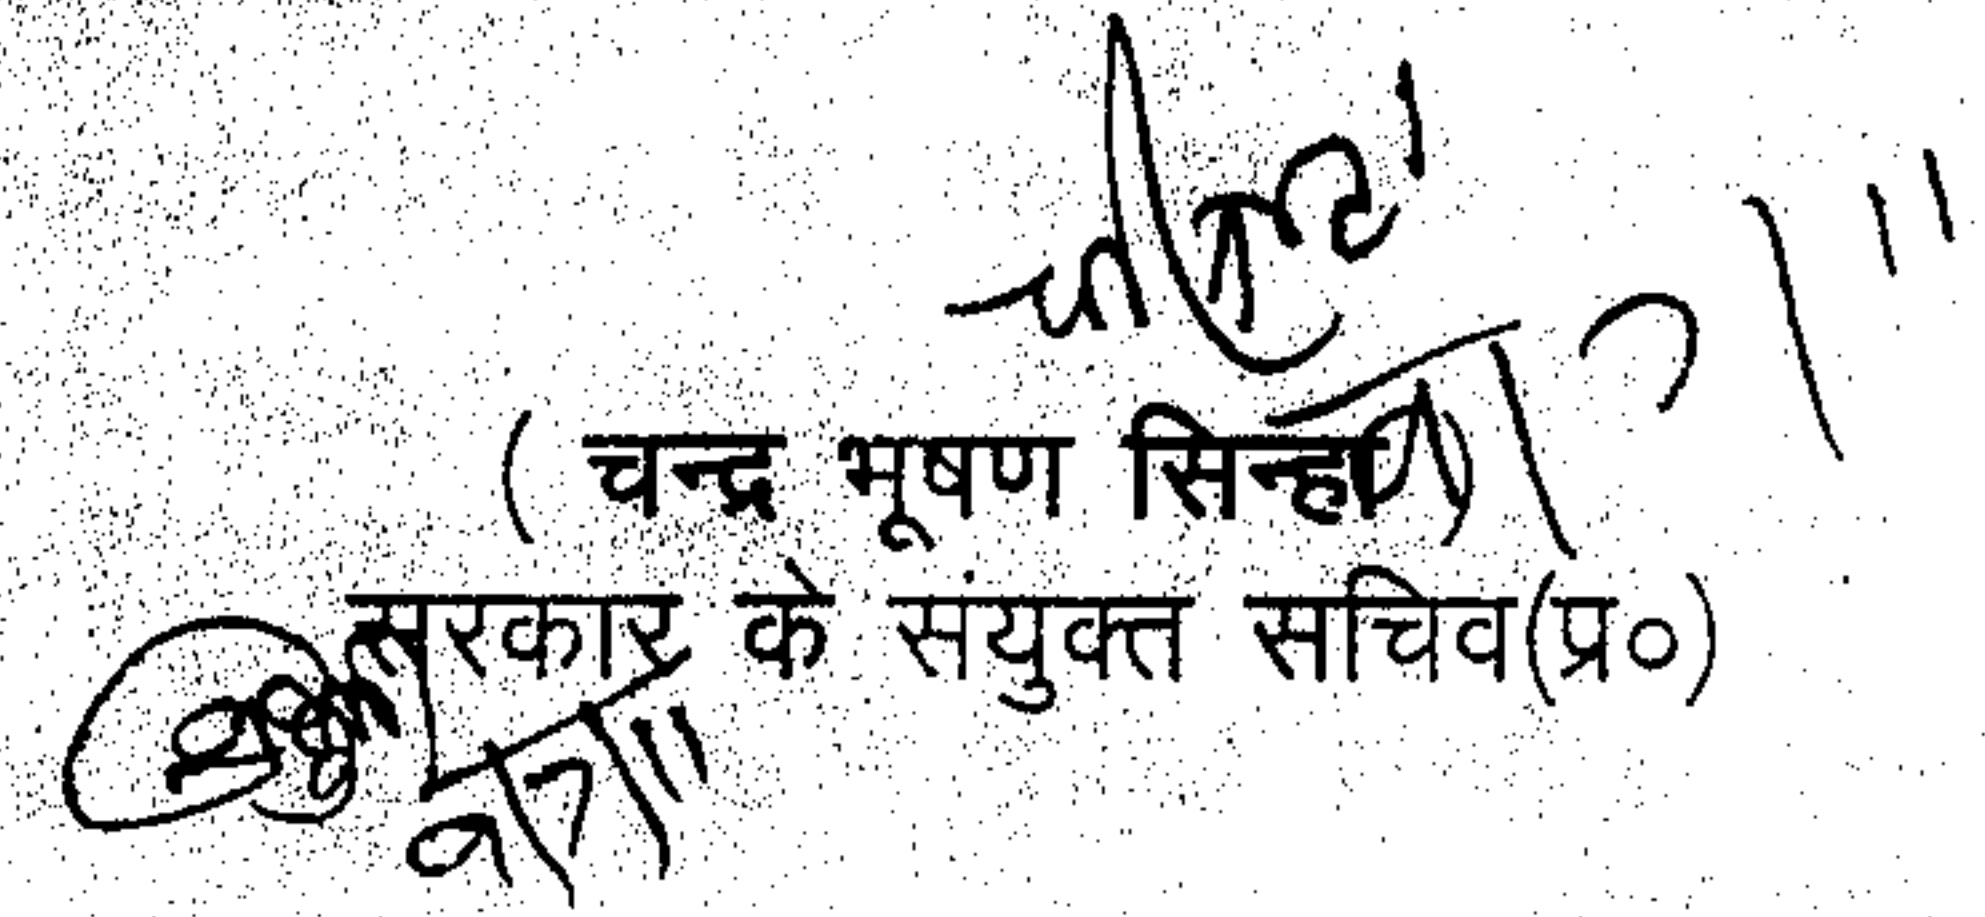 ( चन्द्र भूषण सिन्हा )
सरकार के संयुक्त सचिव(प्र०)